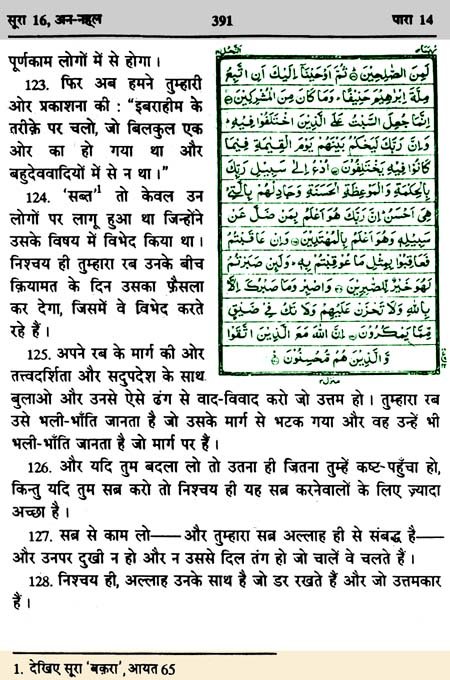 सूरा 16, अन-नह्ल 391 पारा 14
पूर्णकाम लोगों में से होगा।
123. फिर अब हमने तुम्हारी
ओर प्रकाशना की : “इबराहीम के
तरीक़े पर चलो, जो बिलकुल एक
ओर का हो गया था और
बहुदेववादियों में से न था।”
124. ‘सब्त’1 तो केवल उन
लोगों पर लागू हुआ था जिन्होंने
उसके विषय में विभेद किया था।
निश्चय ही तुम्हारा रब उनके बीच
क़ियामत के दिन उसका फ़ैसला
कर देगा, जिसमें वे विभेद करते
रहे हैं।
125. अपने रब के मार्ग की ओर
तत्त्वदर्शिता और सदुपदेश के साथ
لَمِنَ الصّٰلِحِيْنَ ثُمَّ اَوْحَيْنَاۤ اِلَيْكَ اَنِ اتَّبِعْ
مِلَّةَ اِبْرٰهِيْمَ حَنِيْفًا وَمَا كَانَ مِنَ الْمُشْرِكِيْنَ
اِنَّمَا جُعِلَ السَّبْتُ عَلَى الَّذِيْنَ اخْتَلَفُوْا فِيْهِ
وَاِنَّ رَبَّكَ لَيَحْكُمُ بَيْنَهُمْ يَوْمَ الْقِيٰمَةِ فِيْمَا
كَانُوْا فِيْهِ يَخْتَلِفُوْنَ اُدْعُ اِلٰى سَبِيْلِ رَبِّكَ
بِالْحِكْمَةِ وَالْمَوْعِظَةِ الْحَسَنَةِ وَجَادِلْهُمْ بِالَّتِيْ
هِيَ اَحْسَنُ اِنَّ رَبَّكَ هُوَ اَعْلَمُ بِمَنْ ضَلَّ عَنْ
سَبِيْلِهٖ وَهُوَ اَعْلَمُ بِالْمُهْتَدِيْنَ وَاِنْ عَاقَبْتُمْ
فَعَاقِبُوْا بِمِثْلِ مَا عُوْقِبْتُمْ بِهٖ وَلَئِنْ صَبَرْتُمْ
لَهُوَ خَيْرٌ لِّلصّٰبِرِيْنَ وَاصْبِرْ وَمَا صَبْرُكَ اِلَّا
بِاللّٰهِ وَلَا تَحْزَنْ عَلَيْهِمْ وَلَا تَكُ فِيْ ضَيْقٍ
مِّمَّا يَمْكُرُوْنَ اِنَّ اللّٰهَ مَعَ الَّذِيْنَ اتَّقَوْا
وَّالَّذِيْنَ هُمْ مُّحْسِنُوْنَ
बुलाओ और उनसे ऐसे ढंग से वाद-विवाद करो जो उत्तम हो। तुम्हारा रब
उसे भली-भाँति जानता है जो उसके मार्ग से भटक गया और वह उन्हें भी
भली-भाँति जानता है जो मार्ग पर हैं।
126. और यदि तुम बदला लो तो उतना ही जितना तुम्हें कष्ट-पहुँचा हो,
किन्तु यदि तुम सब्र करो तो निश्चय ही यह सब्र करनेवालों के लिए ज़्यादा
अच्छा है।
127. सब्र से काम लो—और तुम्हारा सब्र अल्लाह ही से संबद्ध है—
और उनपर दुखी न हो और न उससे दिल तंग हो जो चालें वे चलते हैं।
128. निश्चय ही, अल्लाह उनके साथ है जो डर रखते हैं और जो उत्तमकार
हैं।
1. देखिए सूरा ‘बक़रा’, आयत 65